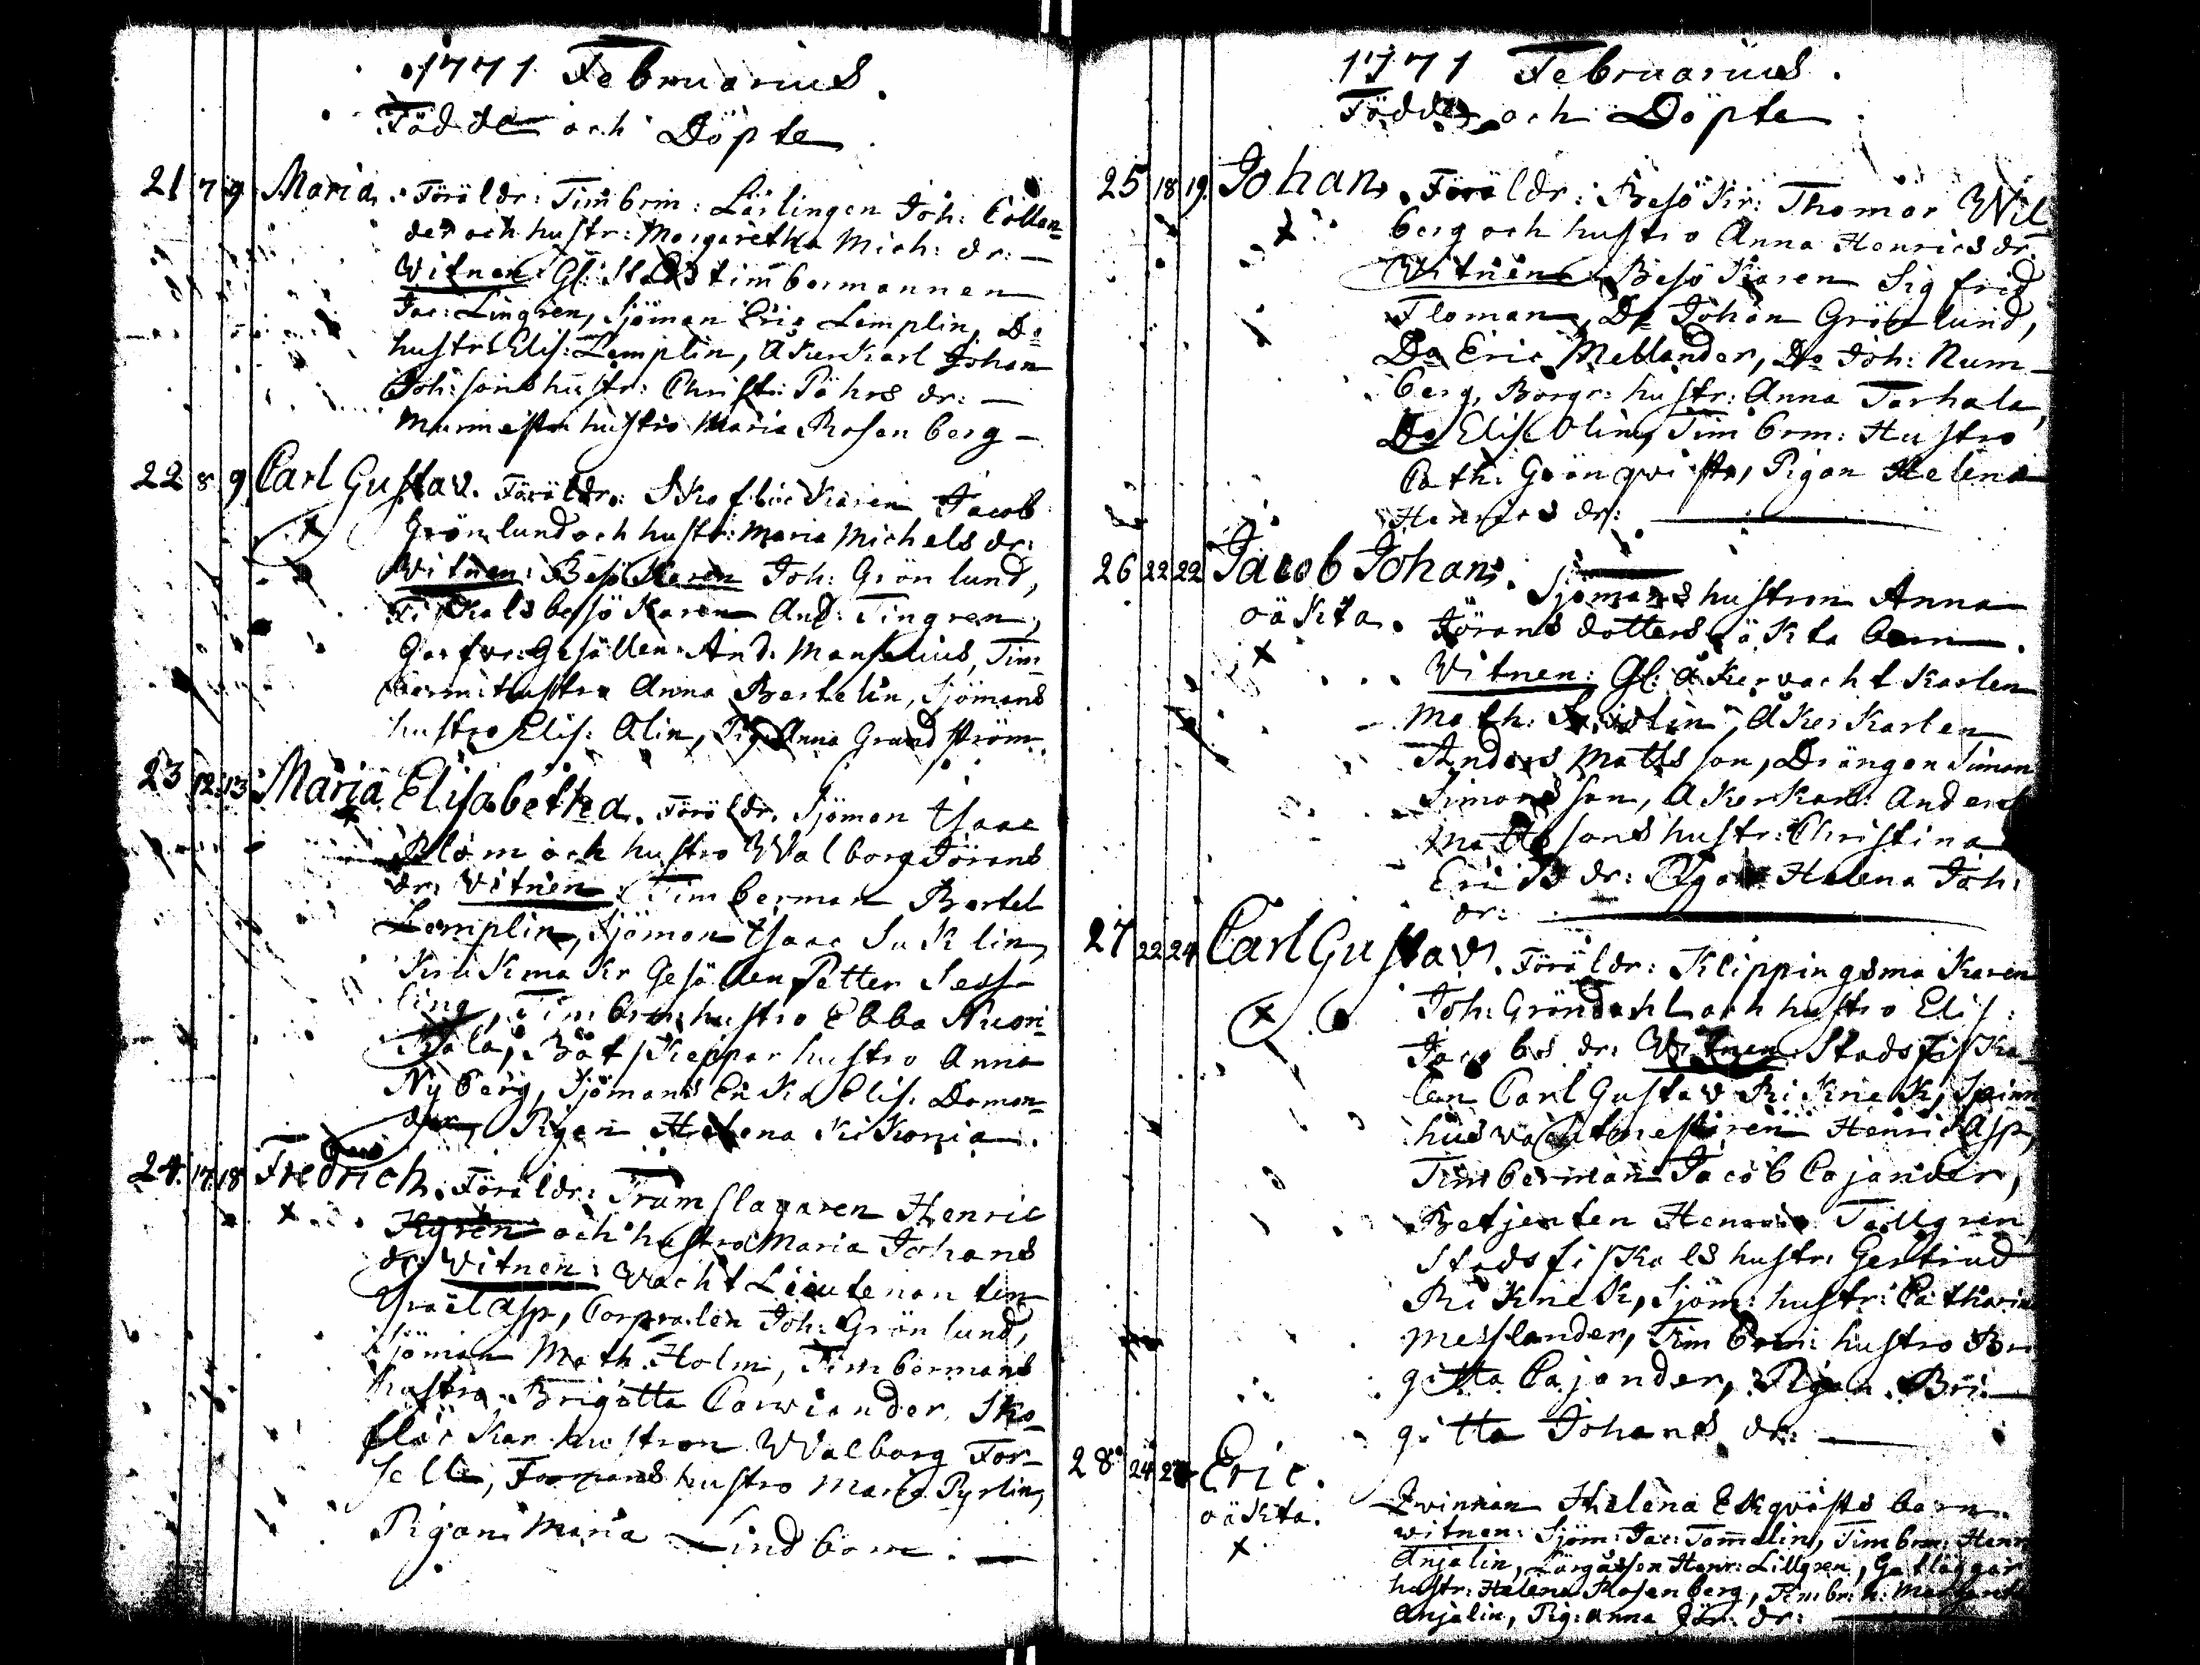 1771 Februarius.
Födde och Döpte
21 7 9 Maria. Föräldr: Timbrm: Lärlingen Joh: Collan-
der och hustr: Margaretha Mich: dr: —
Witnen: Gl: Stadstimbermannen
Jac: Lingren, Sjöman Eric Lemplin, Do
hustr: Elis: Lemplin, Åkerkarl Johan
Joh:sons hustr: Christ: Påhrs dr: —
Murmestr hustro Maria Rosenberg —
22 8 9 Carl Gustav. Föräldr: Skoflickaren Jacob
x Grönlund och hustr: Maria Michels dr:
Witnen: Besökaren Joh: Grönlund,
Fiskalsbesökaren And: Tingren,
Garfvr: Gesällen And: Manselius, Tim-
bermn: hustro Anna Bertelin, Sjömans
hustro Elis: Alin, Pig: Anna Grandström.
23 12 13 Maria Elisabetha. Föräldr. Sjöman Isaac
Blom och hustro Walborg Jörans
dr: Witnen: Timberman Bertel
Lemplin, Sjöman Isaac Suklin,
Krukmakr Gesällen Petter Sess-
ling, Timbrm: hustro Ebba Nuori-
kala, Båtskeppar hustro Anna
Nyberg, Sjömans Enka Elis. Daman-
der, Pigan Helena Kikonia.
24. 17. 18 Fredrich. Föräldr: Trumslagaren Henric
x Hgren och hustro Maria Johans
dr: Witnen: Vacht Lieutenanten
Israel Asp, Corpralen Joh: Grönlund,
Sjöman Math. Holm, Timbermans
hustro Brigitta Carwiander, Sko-
flickar hustron Walborg For-
sell, Formans hustro Maria Pyrlin,
Pigan Maria Lindbom. —
1771 Februarius.
Födde och Döpte
25 18 19. Johan. Föräldr: Besökr: Thomas Wil-
x berg och hustro Anna Henrics dr:
Witnen: Besökaren Sigfrid
Floman, Do Johan Grönlund,
Do Eric Mellander, Do Joh: Rum-
berg, Borgr: hustr: Anna Tarhala,
Do Elis. Olin, Timbrm: Hustro
Cath: Grönqvist, Pigan Helena
Henrics dr: —
26 22 22 Jacob Johan. Sjömans hustron Anna
oäkta. Jörans dotters oäkta barn.
x Witnen: Gl: Åkervachtkarlen
Math: Åkerkarlen
Anders Matts son, Drängen Simon
Simons son, Åkerkarl: Anders
Matts sons hustr: Christina
Erics dr: Pigan Helena Joh:
dr: —
27 22 24 Carl Gustav. Föräldr: Klippingsmakaren
x Joh: Gröndahl och hustro Elis:
Jacobs dr: Witnen: Stadsfiska-
len Carl Gustav Riknek, Spinn-
husvachtmestaren Henric Asp,
Timberman Jacob Cajander,
Betjenten Henric Tallgren,
Stadsfiskals hustr: Gertrud
Riknek, Sjöm: hustr: Catharina
Meslander, Timbrm: hustro Bri-
gitta Cajander, Pigan Bri-
gitta Johans dr: —
28 24 Eric. Qvinnan Helena Ekqvists barn.
oäkta. Witnen: Sjöm: Jac: Tammelin, Timbrm: Henr:
x Anjalin, Borgarson Henr: Lillgren, Gatläggar
hustr: Helena Rosenberg, Timbr: h: Margareta
Anjalin, Pig: Anna Jör: dr: —